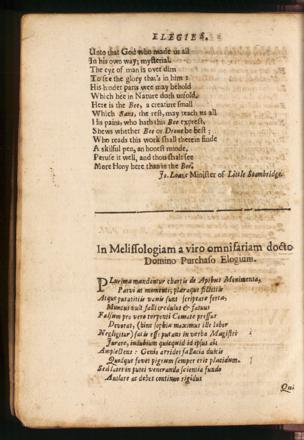 ELEGIES.
Unto that God who made us all
In his own way; mysterial.
The eye of man is over dim
To see the glory that's in him:
His hinder parts wee may behold
Which hee in Nature doth unfold.
Here is the Bee, a creature small
Which Sans, the rest, may teach us all
His pains, who hath this Bee exprest,
Shews whether Bee or Drone be best;
Who reads this work shall therein finde
A skilful pen, an honest minde,
Peruse it well, and thou shalt see
More Hony here than in the Bee.
Jo. Minister of Little Stambridge.
In Melissologiam a viro omnifariam docto
Domino Purchaso Elogium.
PLurima mandentur chartis de Apibus Monimenta,
Parvi ac momenti; pleraque fictitiis
Atque putatitiis veniis sunt scripture
credulus & fatuus
Falsum pro vero
Devorat, (hinc sophiæ maximus ille labor
Negligitur) satis est putans in verba Magistri
Jurare, indubium quicquid id ipsus ait
Amplectens: Genio arridet fallacia dulcis
Qualque favet pigrum semper erit placidum.
Sed latet in putei veneranda scientia fundo
Anilare at debet rigidus
Qui